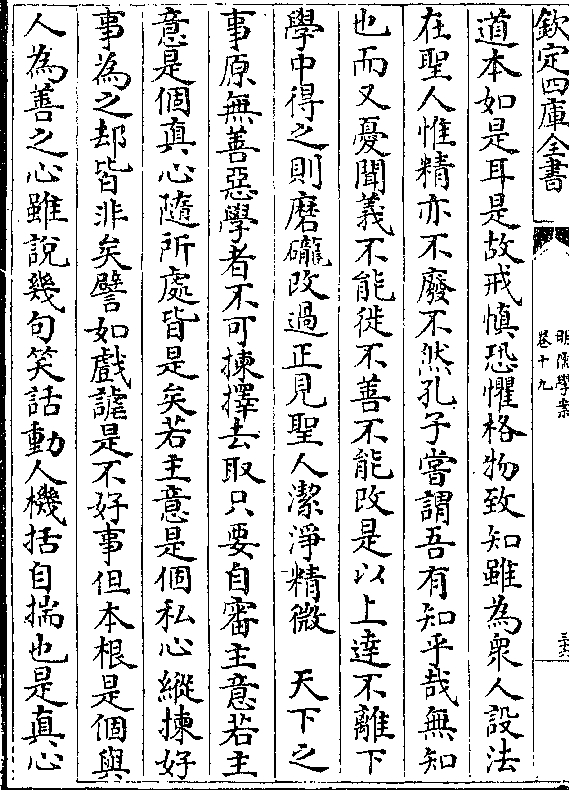 欽定四庫全書
明儒學案
卷十九
道本如是耳是故戒慎恐懼格物致知雖為衆人設法
在聖人惟精亦不廢不然孔子嘗謂吾有知乎哉無知
也而又憂聞義不能徙不善不能改是以上達不離下
學中得之則磨礲改過正見聖人潔淨精微　天下之
事原無善惡學者不可揀擇去取只要自審主意若主
意是個真心隨所處皆是矣若主意是個私心縱揀好
事為之却皆非矣譬如戲謔是不好事但本根是個與
人為善之心雖說幾句笑話動人機括自揣也是真心